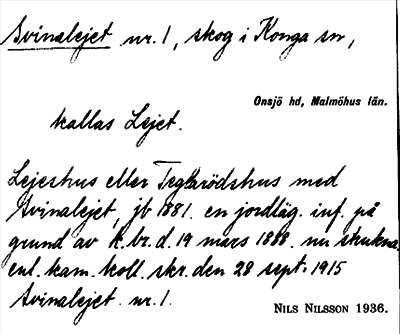 Svinalejet nr. 1, skog i Konga sn,
Onsjö hd, Malmöhus län.
kallas Lejet.
Lejeshus eller Teglarödshus med
Svinalejet, jb 1881. en jordläg. inf. på
grund av k. br. d. 19 mars 1888. nu strukna
enl. kam. koll. skr. den 28 sept. 1915
Svinalejet nr. 1.
NILS NILSSON 1936.